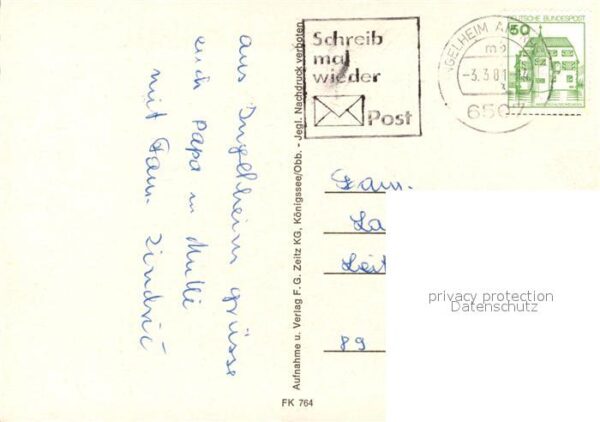 aus Ingelheim grüsse
euch Papa u Mutti
mit Fam. Zindrić
Aufnahme u. Verlag F. G. Zeitz KG, Königssee/Obb. - Jegl. Nachdruck verboten
FK 764
Schreib
mal
wieder
Post
INGELHEIM AM
mb
-3.3.81
6507
DEUTSCHE BUNDESPOST
50
Fam.
La
Leit
89
privacy protection
Datenschutz